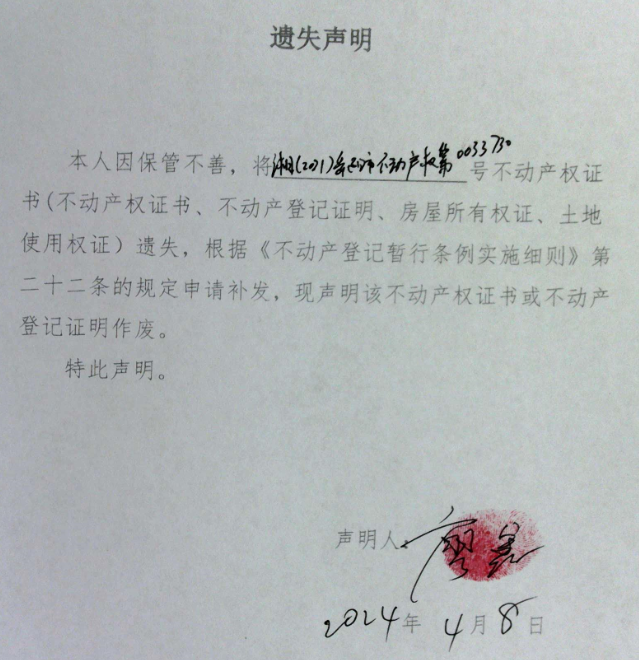 遗失声明
本人因保管不善，将湘(2021)岳阳市不动产权第0033730号不动产权证
书(不动产权证书、不动产登记证明、房屋所有权证、土地
使用权证）遗失，根据《不动产登记暂行条例实施细则》第
二十二条的规定申请补发，现声明该不动产权证书或不动产
登记证明作废。
特此声明。
声明人 廖鑫
2024年 4月8日